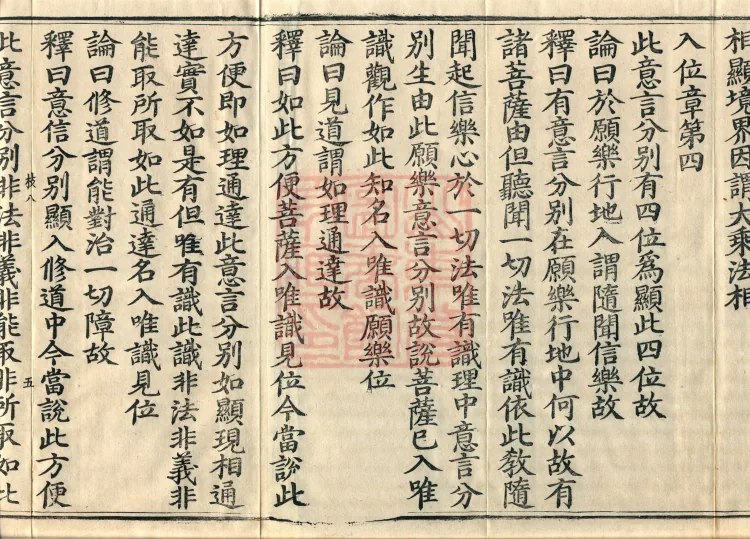 相顯境界因謂大乘法相
入位章第四
此意言分別有四位爲顯此四位故
論曰於願樂行地入謂隨聞信樂故
釋曰有意言分別在願樂行地中何以故有
諸菩薩由但聽聞一切法唯有識依此教隨
聞起信樂心於一切法唯有識理中意言分
別生由此願樂意言分別故說菩薩已入唯
識觀作如此知名入唯識願樂位
論曰見道謂如理通達故
釋曰如此方便菩薩入唯識見位今當說此
方便即如理通達此意言分別如顯現相通
達實不如是有但唯有識此識非法非義非
能取所取如此通達名入唯識見位
論曰修道謂能對治一切障故
釋曰意信分別顯入修道中今當說此方便
枝八 五
此意言分別非法非義非能取非所取如此